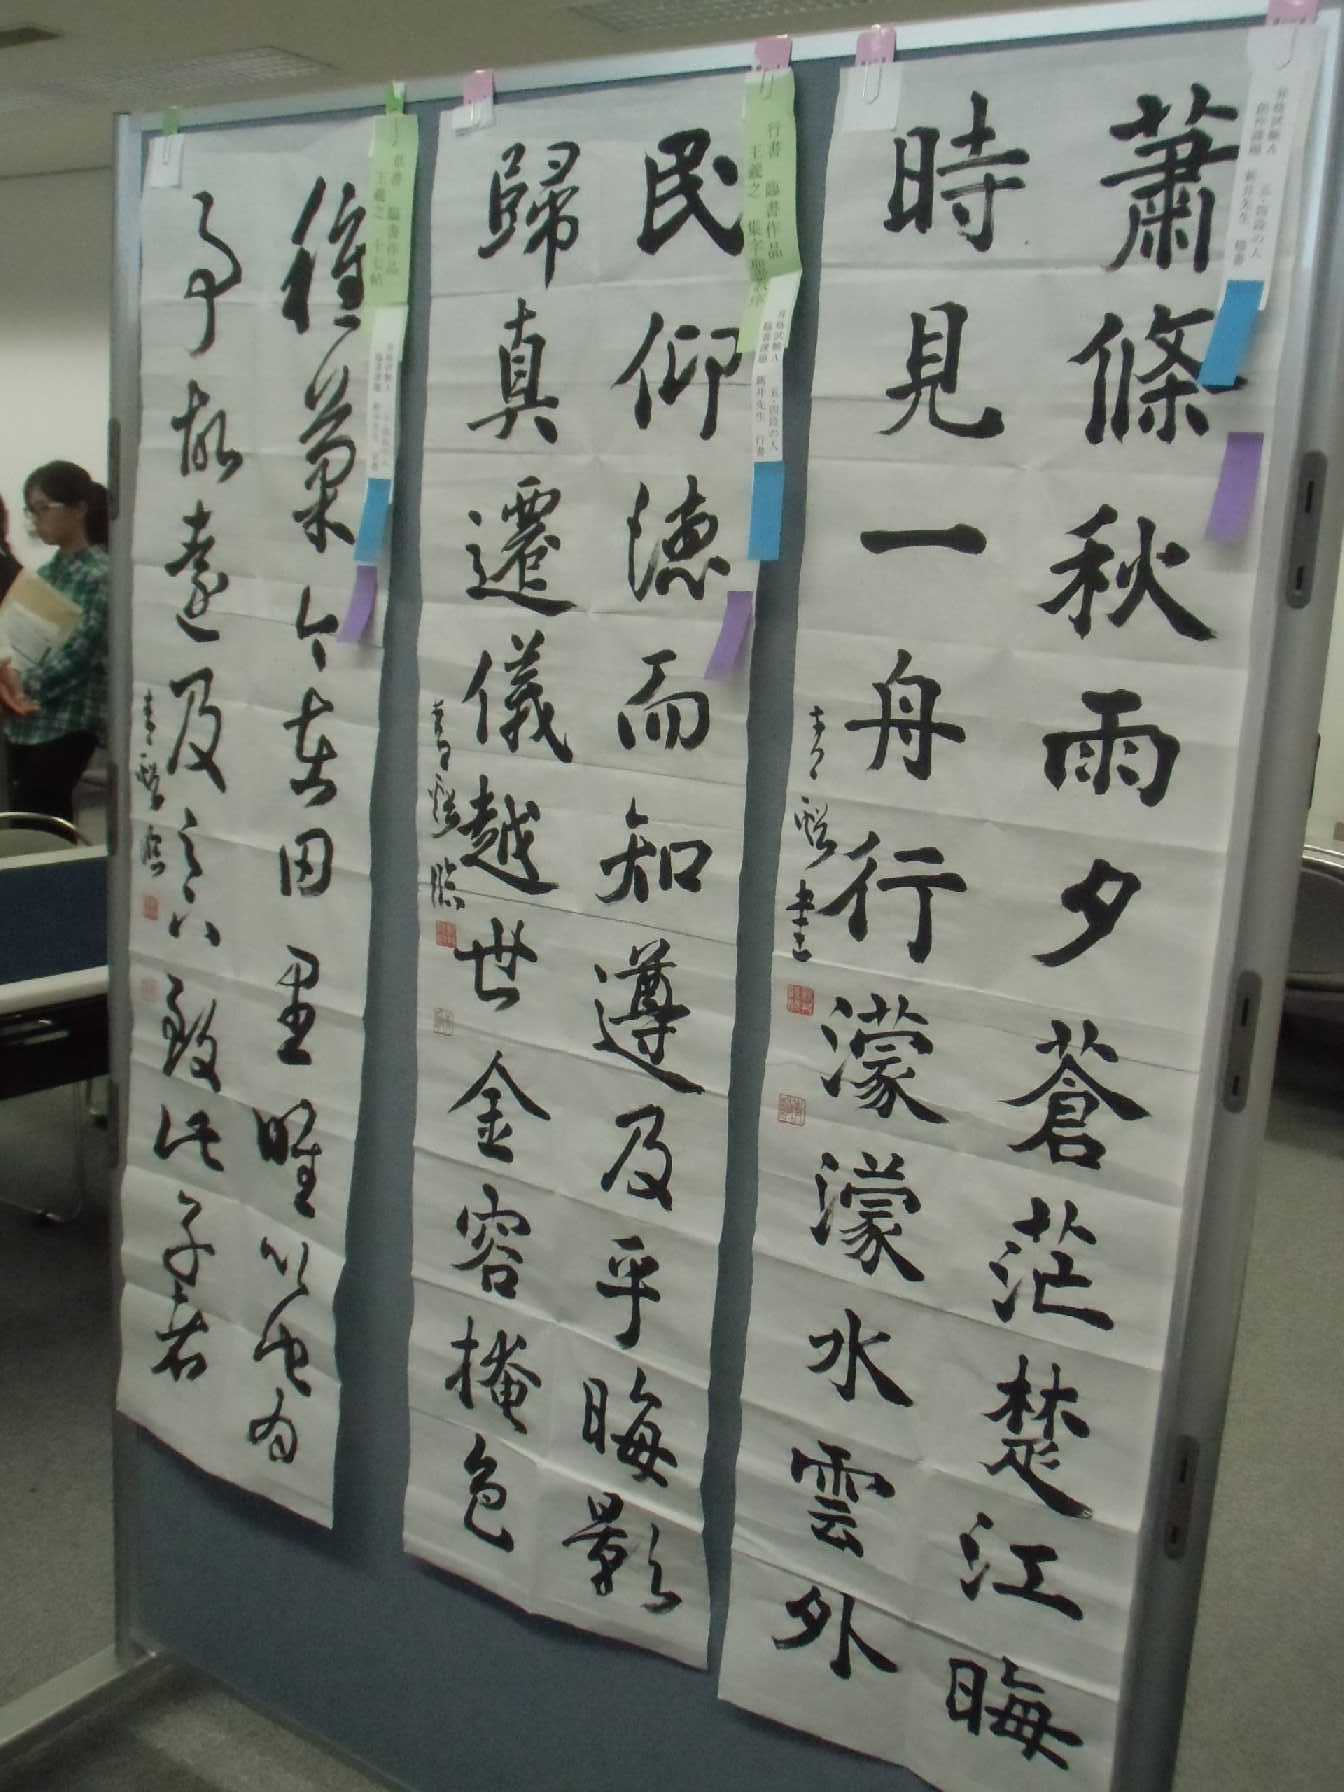 蕭條秋雨夕蒼茫楚江晦
時見一舟行濛濛水雲外
行書 臨書作品
王羲之 集字聖教序
民仰德而知遵及乎晦影
歸真遷儀越世金容掩色
草書 臨書作品
王羲之 十七帖
種菓今在田里唯以此為
事故遠及足下致此子者